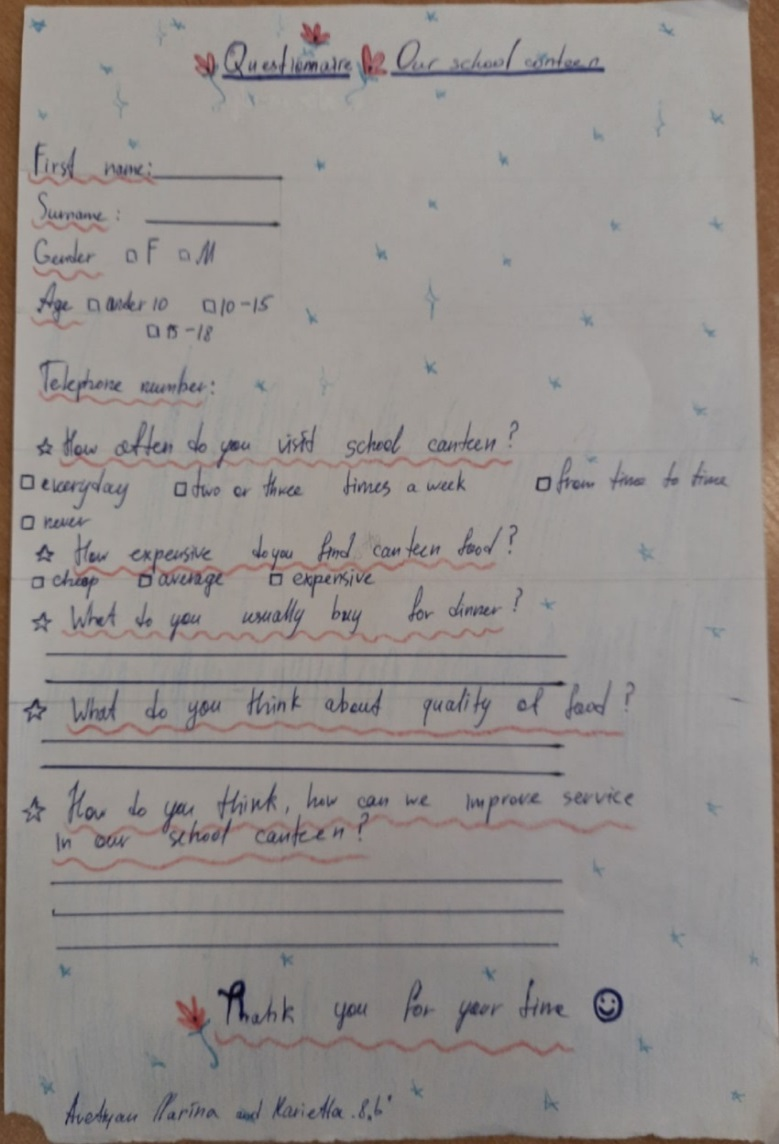 Questionnaire Our school canteen
First name:
Surname:
Gender □ F □ M
Age □ under 10 □ 10-15
□ 15-18
Telephone number:
☆ How often do you visit school canteen?
□ everyday □ two or three times a week □ from time to time
□ never
☆ How expensive do you find canteen food?
□ cheap □ average □ expensive
☆ What do you usually buy for dinner?
☆ What do you think about quality of food?
☆ How do you think, how can we improve service
in our school canteen?
Thank you for your time ☺
Avetyan Marina and Marietta. 8,b'